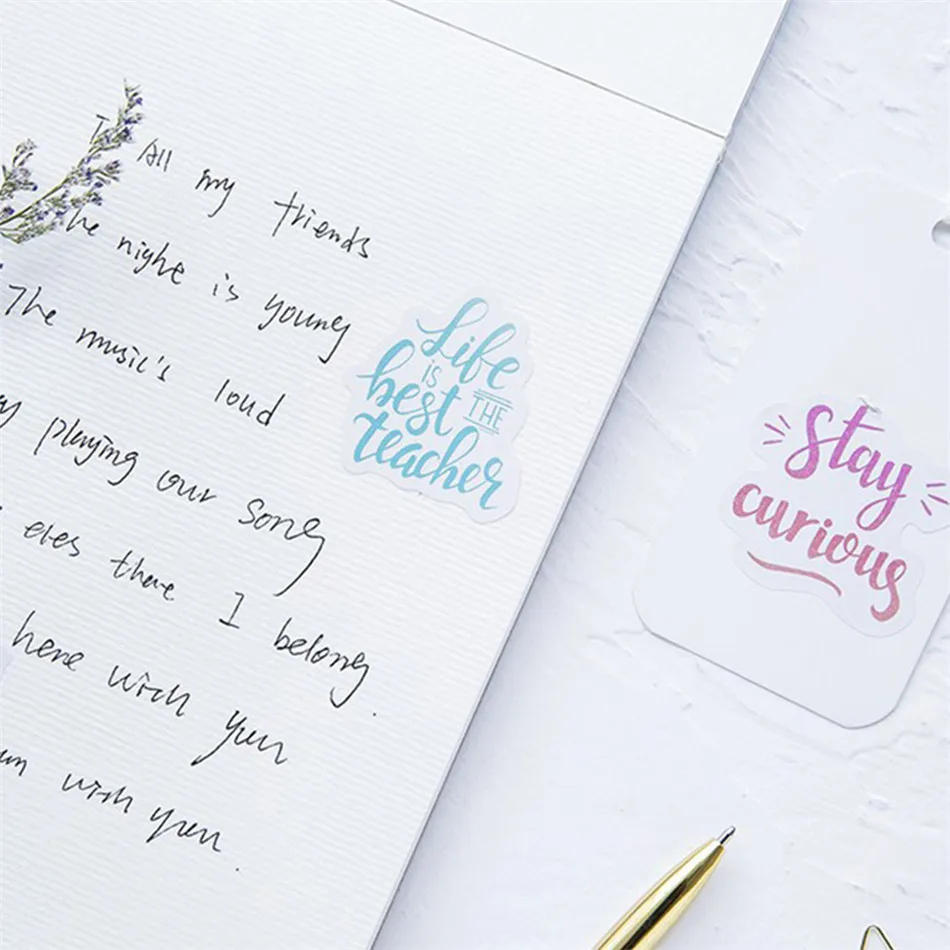 All my friends
he nighe is young
The music's loud
playing our song
eves there I belong
here with you
with you.
Life
is
best THE
teacher
stay
curious